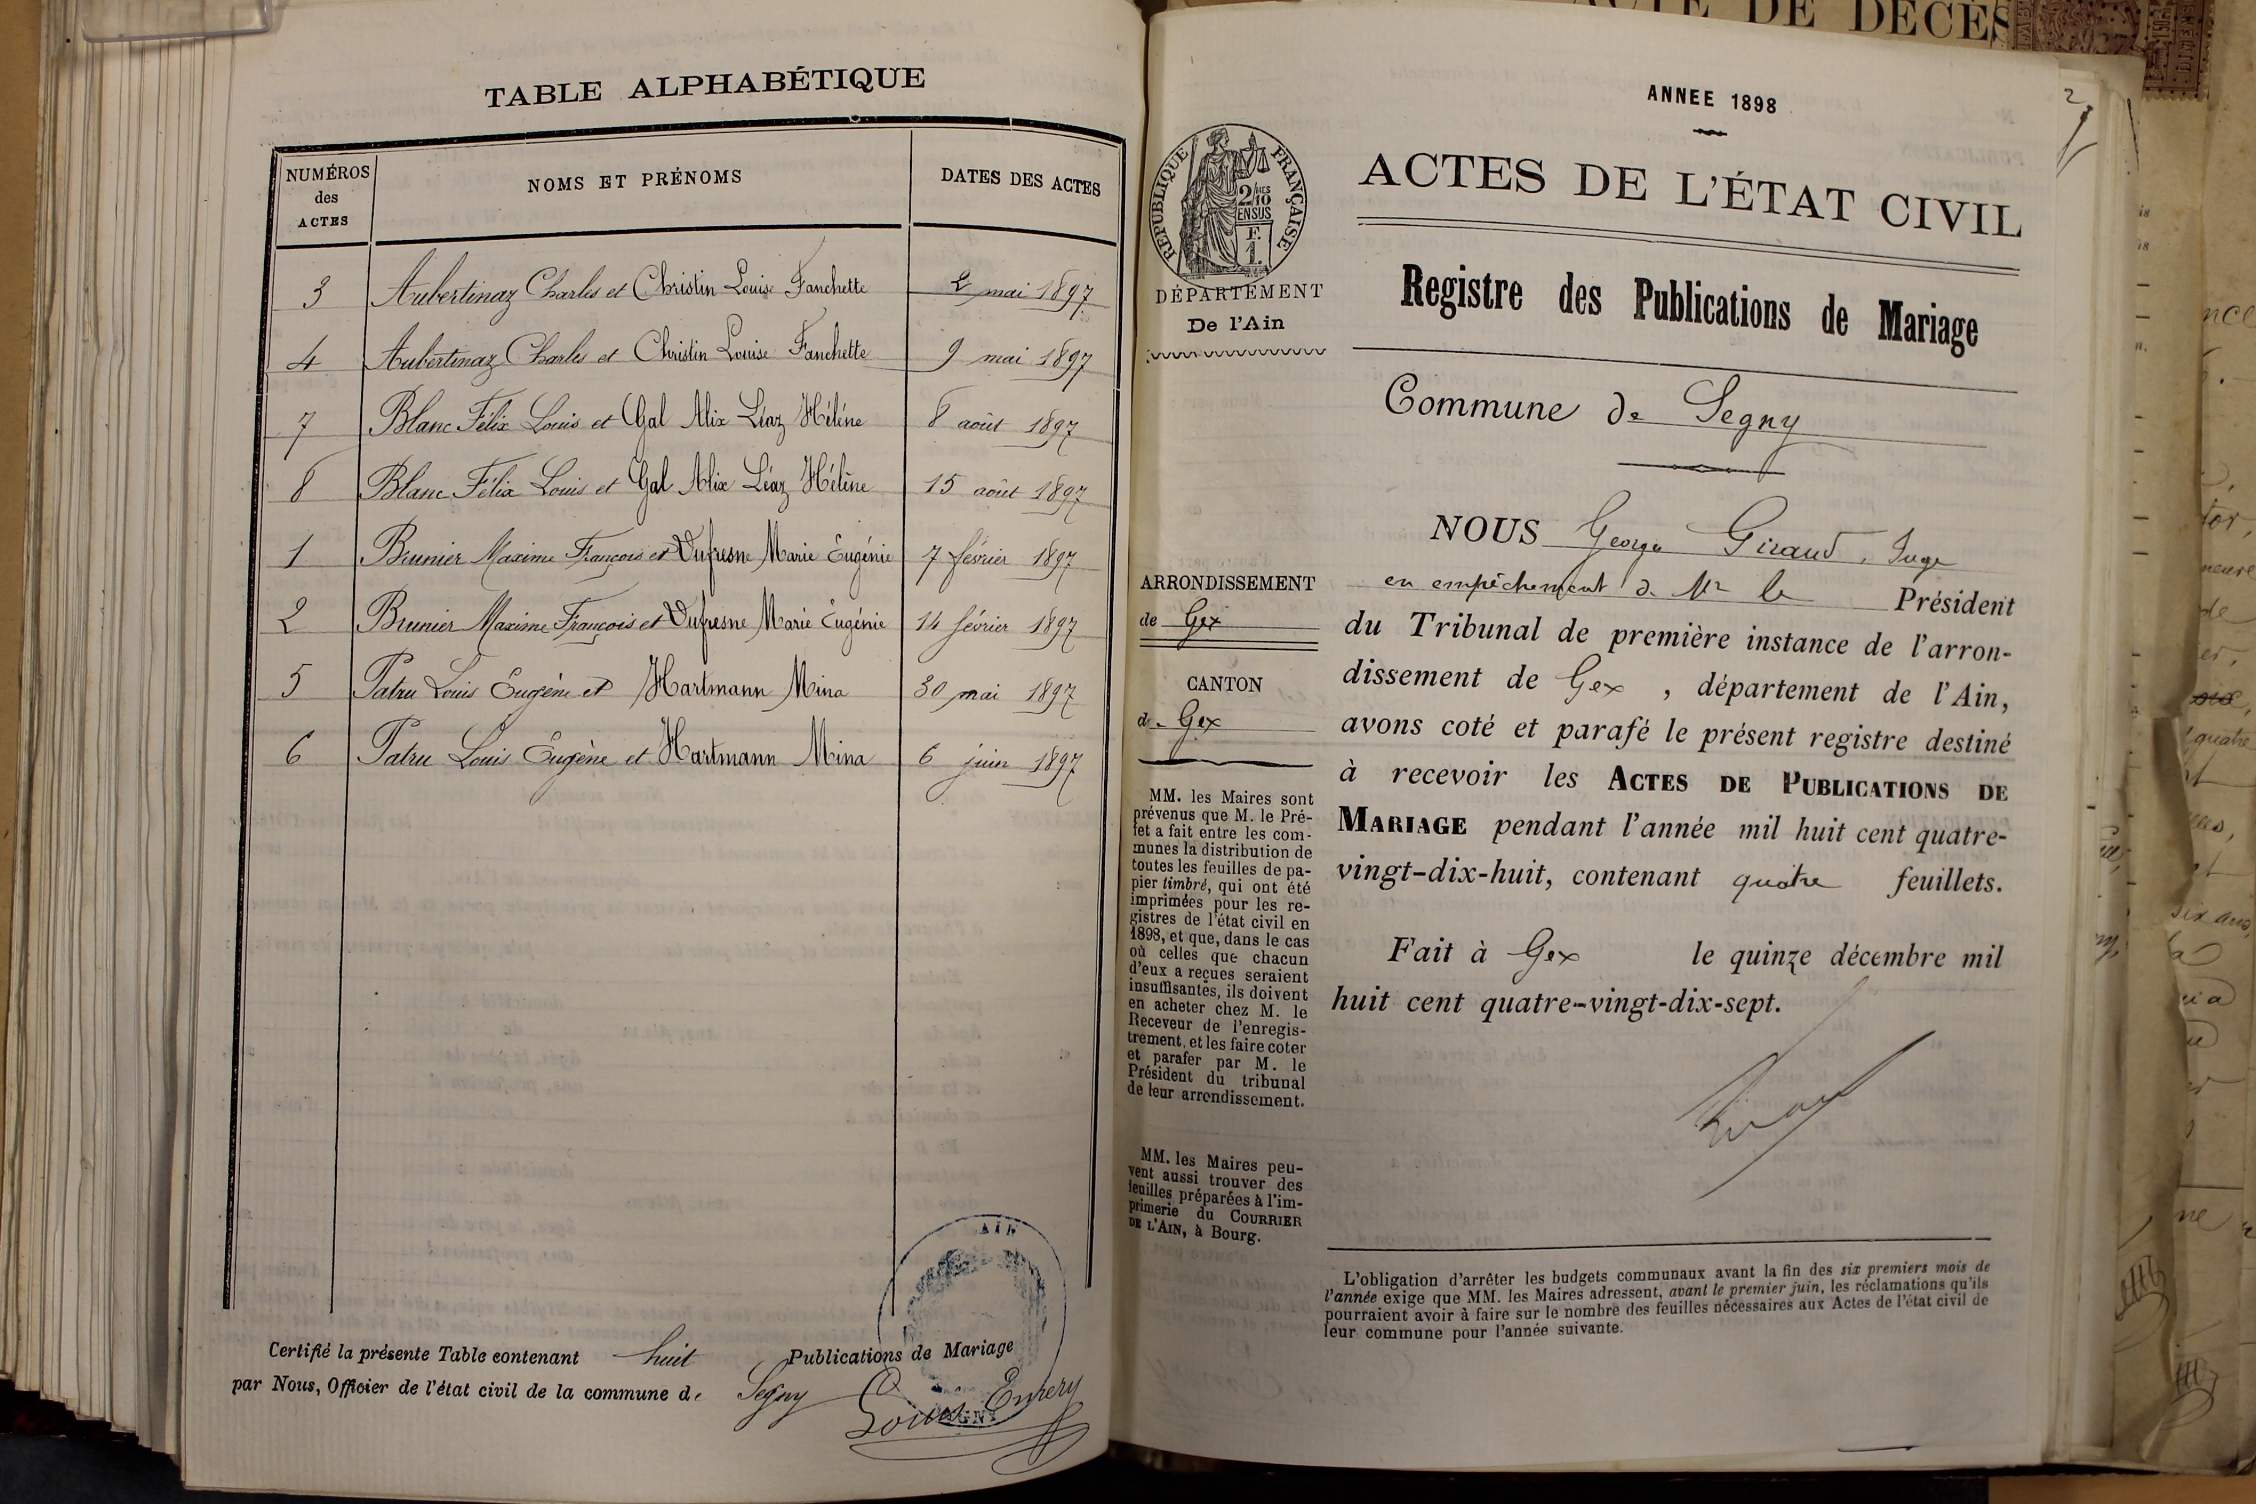 TABLE ALPHABÉTIQUE
NUMÉROS des ACTES
NOMS ET PRÉNOMS
DATES DES ACTES
3 Aubertinaz Charles et Christin Louise Fanchette 2 mai 1897
4 Aubertinaz Charles et Christin Louise Fanchette 9 mai 1897
7 Blanc Félix Louis et Gal Alix Léaz Hélène 8 août 1897
8 Blanc Félix Louis et Gal Alix Léaz Hélène 15 août 1897
1 Brunier Maxime François et Dufresne Marie Eugénie 7 février 1897
2 Brunier Maxime François et Dufresne Marie Eugénie 14 février 1897
5 Patru Louis Eugène et Hartmann Mina 30 mai 1897
6 Patru Louis Eugène et Hartmann Mina 6 juin 1897
Certifié la présente Table contenant huit Publications de Mariage
par Nous, Officier de l'état civil de la commune de Segny
Louis Emery
AIN
ACTE DE DÉCÈS
2
ANNEE 1898
ACTES DE L'ÉTAT CIVIL
RÉPUBLIQUE FRANÇAISE
2/10
EN SUS
F.
1.
DÉPARTEMENT
De l'Ain
Registre des Publications de Mariage
Commune de Segny
ARRONDISSEMENT
de Gex
CANTON
de Gex
MM. les Maires sont
prévenus que M. le Pré-
fet a fait entre les com-
munes la distribution de
toutes les feuilles de pa-
pier timbré, qui ont été
imprimées pour les re-
gistres de l'état civil en
1898, et que, dans le cas
où celles que chacun
d'eux a reçues seraient
insuffisantes, ils doivent
en acheter chez M. le
Receveur de l'enregis-
trement, et les faire coter
et parafer par M. le
Président du tribunal
de leur arrondissement.
MM. les Maires peu-
vent aussi trouver des
feuilles préparées à l'im-
primerie du COURRIER
DE L'AIN, à Bourg.
NOUS George Giraud, Juge
en empêchement de Mr le Président
du Tribunal de première instance de l'arron-
dissement de Gex, département de l'Ain,
avons coté et parafé le présent registre destiné
à recevoir les ACTES DE PUBLICATIONS DE
MARIAGE pendant l'année mil huit cent quatre-
vingt-dix-huit, contenant quatre feuillets.
Fait à Gex le quinze décembre mil
huit cent quatre-vingt-dix-sept.
L'obligation d'arrêter les budgets communaux avant la fin des six premiers mois de
l'année exige que MM. les Maires adressent, avant le premier juin, les réclamations qu'ils
pourraient avoir à faire sur le nombre des feuilles nécessaires aux Actes de l'état civil de
leur commune pour l'année suivante.